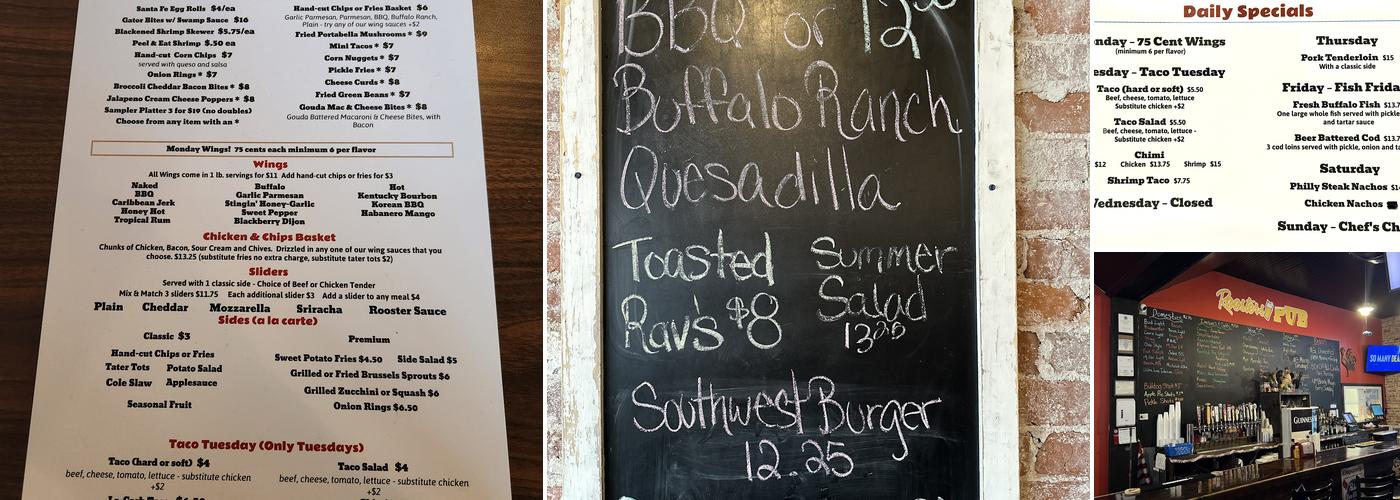 Santa Fe Egg Rolls $4/ea
Gator Bites w/ Swamp Sauce $16
Blackened Shrimp Skewer $5.75/ea
Peel & Eat Shrimp $.50 ea
Hand-cut Corn Chips $7
served with queso and salsa
Onion Rings * $7
Broccoli Cheddar Bacon Bites * $8
Jalapeno Cream Cheese Poppers * $8
Sampler Platter 3 for $19 (no doubles)
Choose from any item with an *
Hand-cut Chips or Fries Basket $6
Garlic Parmesan, Parmesan, BBQ, Buffalo Ranch,
Plain - try any of our wing sauces +$2
Fried Portabella Mushrooms * $9
Mini Tacos * $7
Corn Nuggets * $7
Pickle Fries * $7
Cheese Curds * $8
Fried Green Beans * $7
Gouda Mac & Cheese Bites * $8
Gouda Battered Macaroni & Cheese Bites, with
Bacon
Monday Wings! 75 cents each minimum 6 per flavor
Wings
All Wings come in 1 lb. servings for $11 Add hand-cut chips or fries for $3
Naked
BBQ
Caribbean Jerk
Honey Hot
Tropical Rum
Buffalo
Garlic Parmesan
Stingin' Honey-Garlic
Sweet Pepper
Blackberry Dijon
Hot
Kentucky Bourbon
Korean BBQ
Habanero Mango
Chicken & Chips Basket
Chunks of Chicken, Bacon, Sour Cream and Chives. Drizzled in any one of our wing sauces that you
choose. $13.25 (substitute fries no extra charge, substitute tater tots $2)
Sliders
Served with 1 classic side - Choice of Beef or Chicken Tender
Mix & Match 3 sliders $11.75 Each additional slider $3 Add a slider to any meal $4
Plain Cheddar Mozzarella Sriracha Rooster Sauce
Sides (a la carte)
Classic $3
Hand-cut Chips or Fries
Tater Tots Potato Salad
Cole Slaw Applesauce
Seasonal Fruit
Premium
Sweet Potato Fries $4.50 Side Salad $5
Grilled or Fried Brussels Sprouts $6
Grilled Zucchini or Squash $6
Onion Rings $6.50
Taco Tuesday (Only Tuesdays)
Taco (hard or soft) $4
beef, cheese, tomato, lettuce - substitute chicken
+$2
Taco Salad $4
beef, cheese, tomato, lettuce - substitute chicken
+$2
BBQ or 12
Buffalo Ranch
Quesadilla
Toasted
Rav's $8
Summer
Salad
13.25
Southwest Burger
12.25
Daily Specials
nday - 75 Cent Wings
(minimum 6 per flavor)
esday - Taco Tuesday
Taco (hard or soft) $5.50
Beef, cheese, tomato, lettuce
Substitute chicken +$2
Taco Salad $5.50
Beef, cheese, tomato, lettuce -
Substitute chicken +$2
Chimi
$12 Chicken $13.75 Shrimp $15
Shrimp Taco $7.75
Wednesday - Closed
Thursday
Pork Tenderloin $15
With a classic side
Friday - Fish Frida
Fresh Buffalo Fish $13.7
One large whole fish served with pickle
and tartar sauce
Beer Battered Cod $13.7
3 cod loins served with pickle, onion and ta
Saturday
Philly Steak Nachos $1
Chicken Nachos
Sunday - Chef's Ch
Roosters PUB
Domestics
Bud Light
GUINNESS
SO MANY DEA